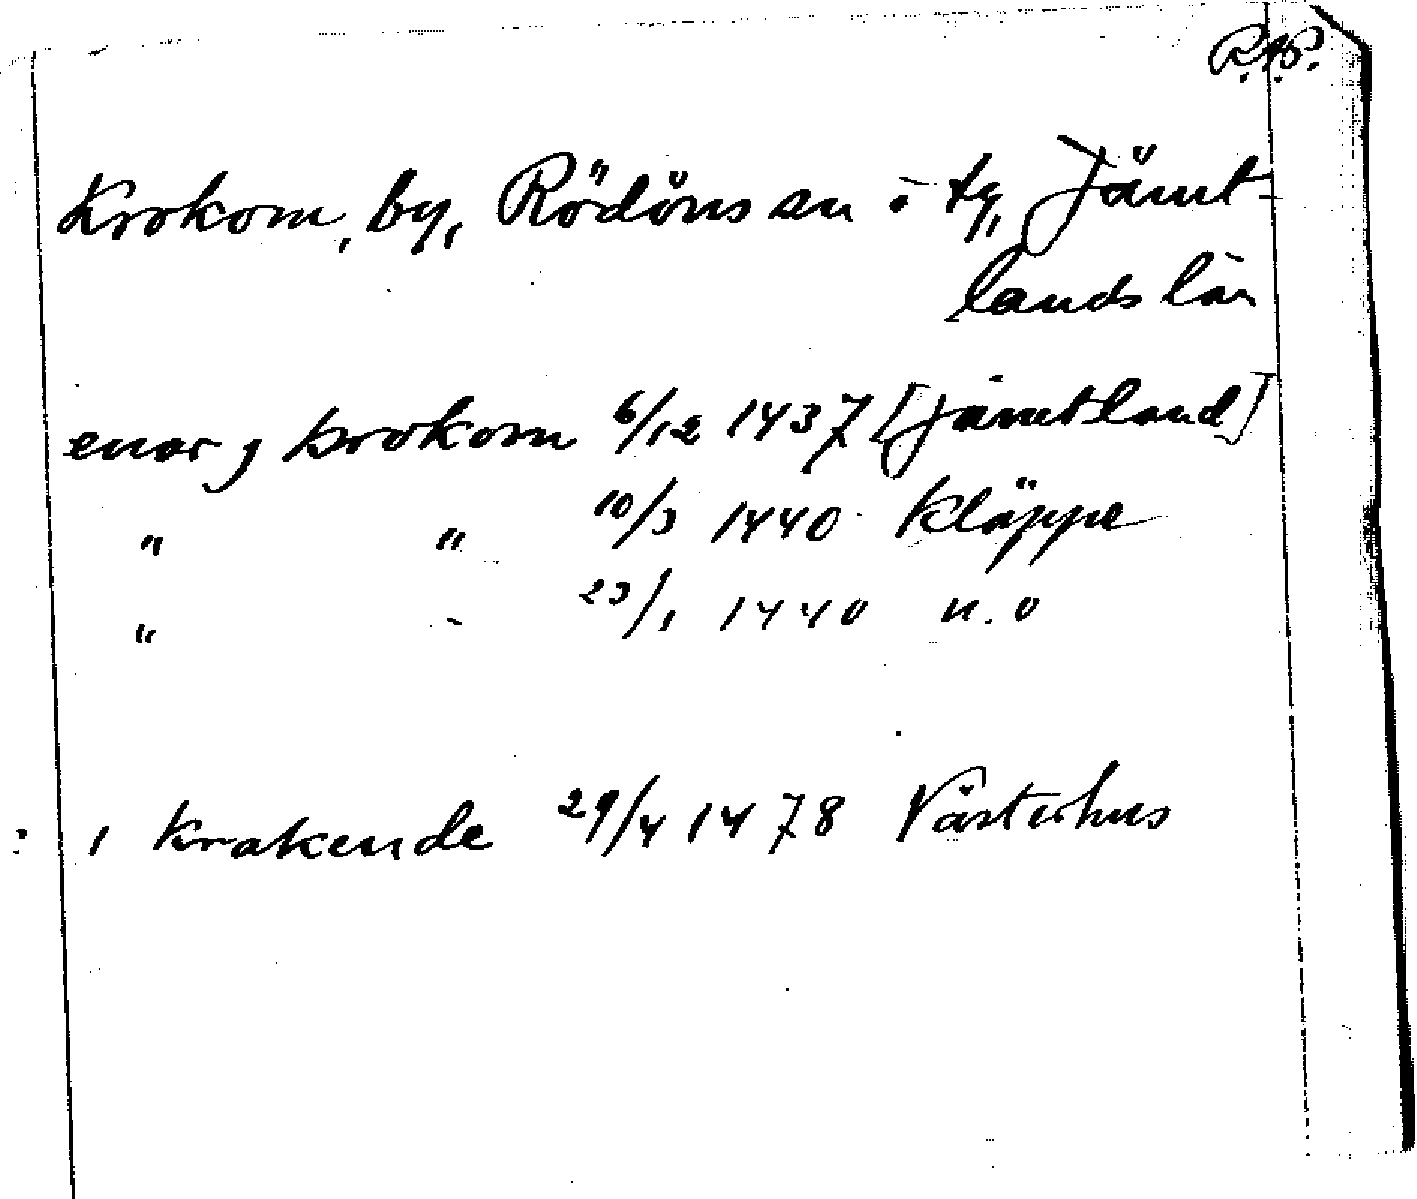 R.A.P.
Krokom, by, Rödöns sn o tg, Jämt-
lands län
enar j krokom 6/12 1437 [Jämtland]
" " 10/3 1440 Kläppe
" - 23/1 1440 n.o
i krakende 29/4 1478 Västerhus